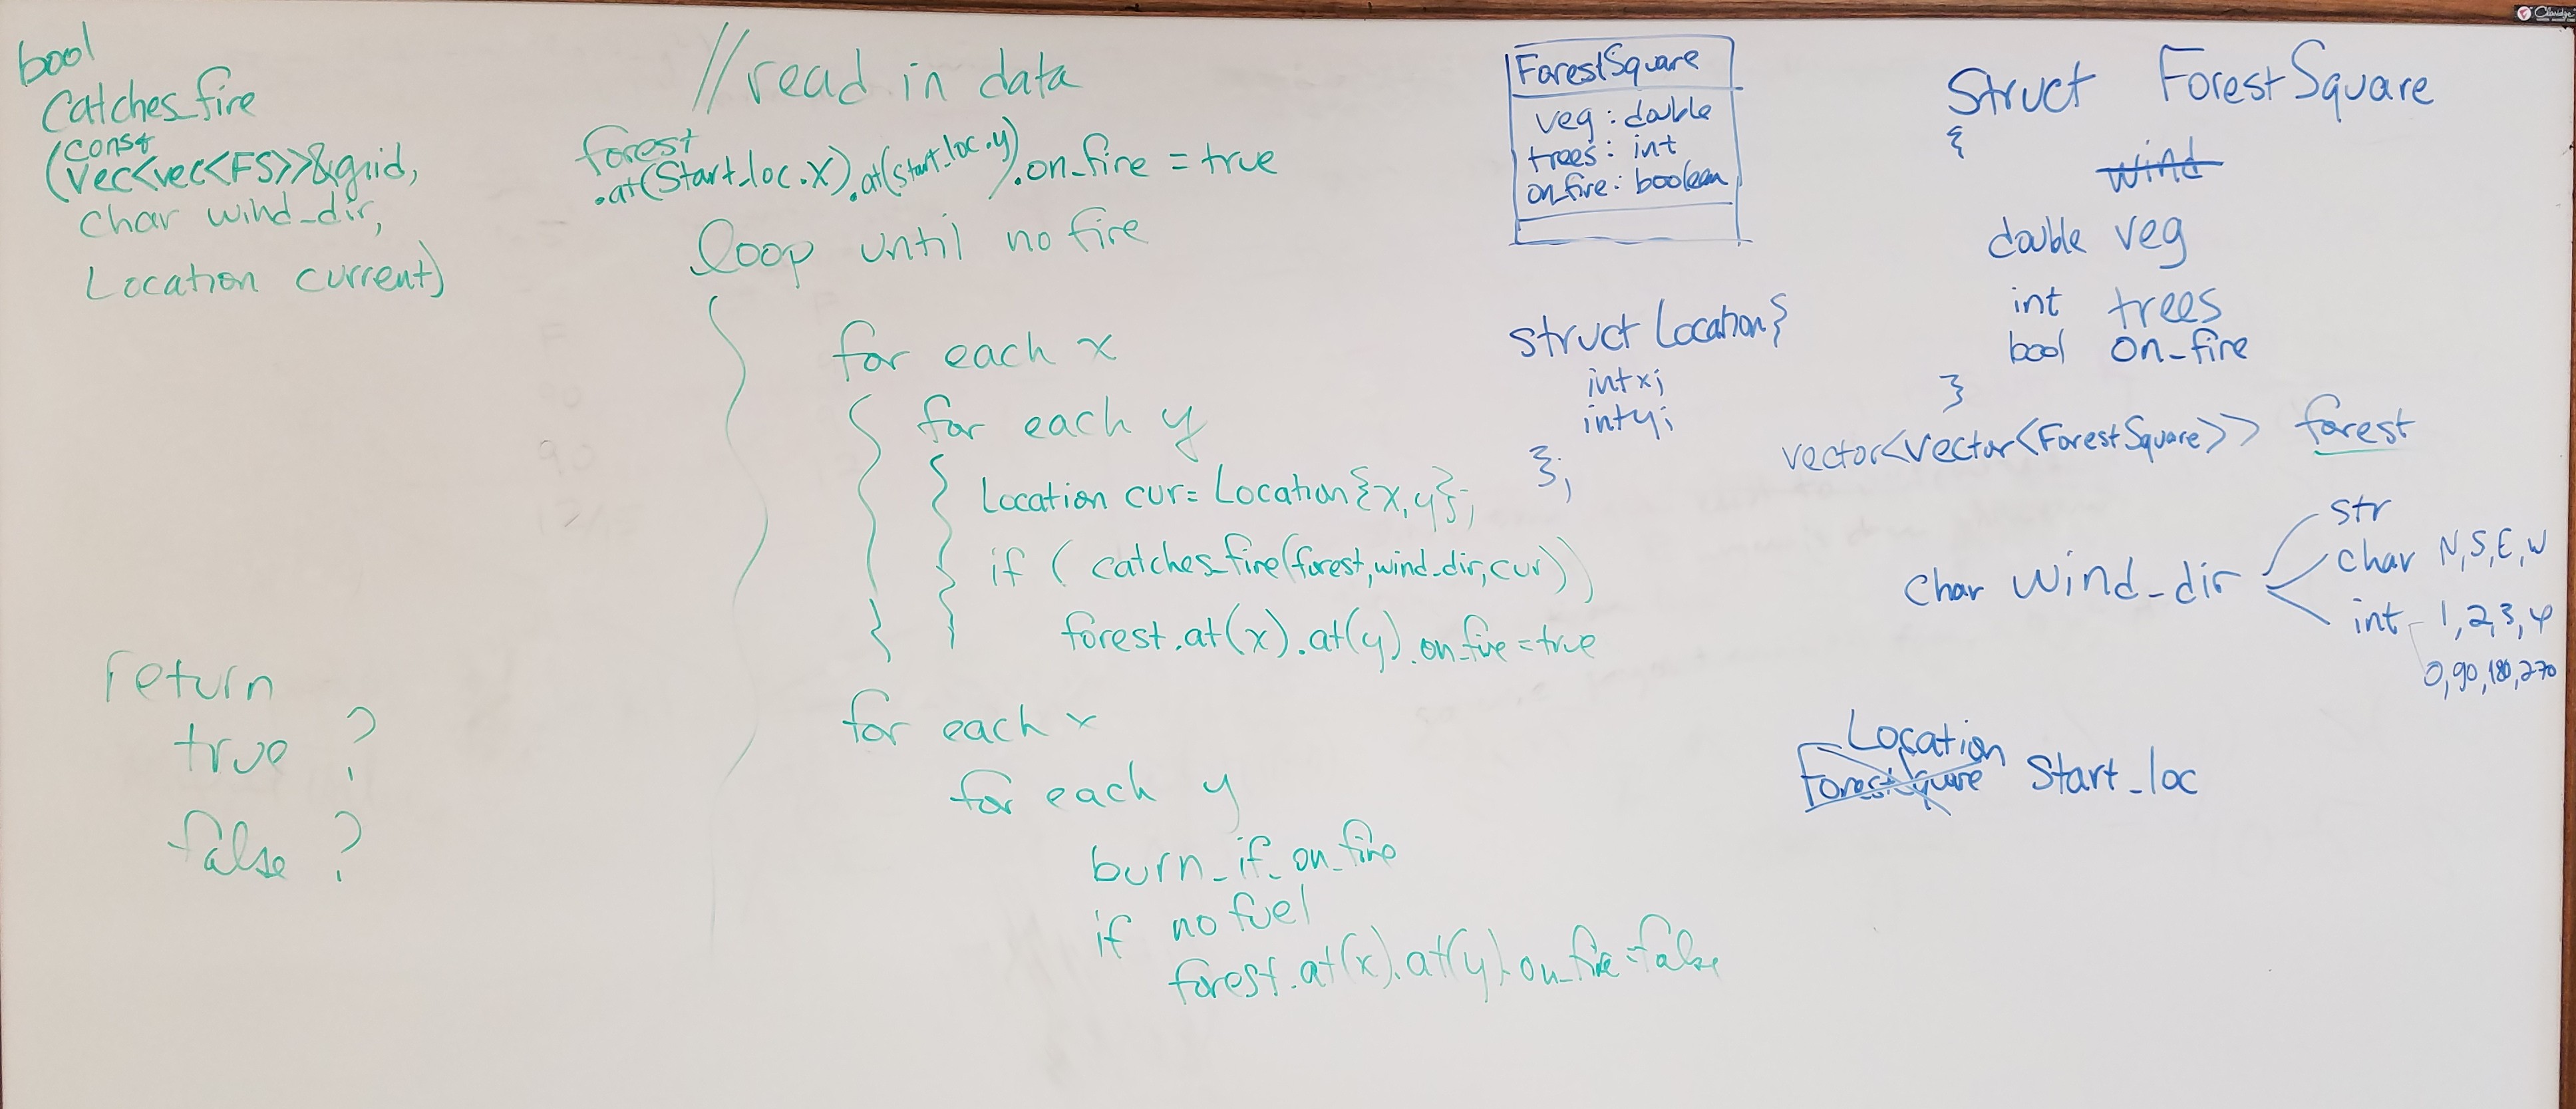 bool
Catches_fire
(const
vec<vec<FS>>&grid,
char wind_dir,
Location current)
return
true ?
false ?
//read in data
forest
.at(Start_loc.x).at(start_loc.y).on_fire = true
loop until no fire
{
for each x
{ for each y
{ Location cur= Location{x,y};
if ( catches_fire(forest,wind_dir,cur))
forest.at(x).at(y).on_fire=true
} }
for each x
for each y
burn_if_on_fire
if no fuel
forest.at(x).at(y).on_fire=false
ForestSquare
veg : double
trees : int
on_fire : boolean
struct Location{
int x;
int y;
};
Struct ForestSquare
{
wind
double veg
int trees
bool on_fire
}
vector<vector<ForestSquare>> forest
char wind_dir
str
char N,S,E,W
int - 1,2,3,4
0,90,180,270
Location
ForestSquare Start_loc
Claridge